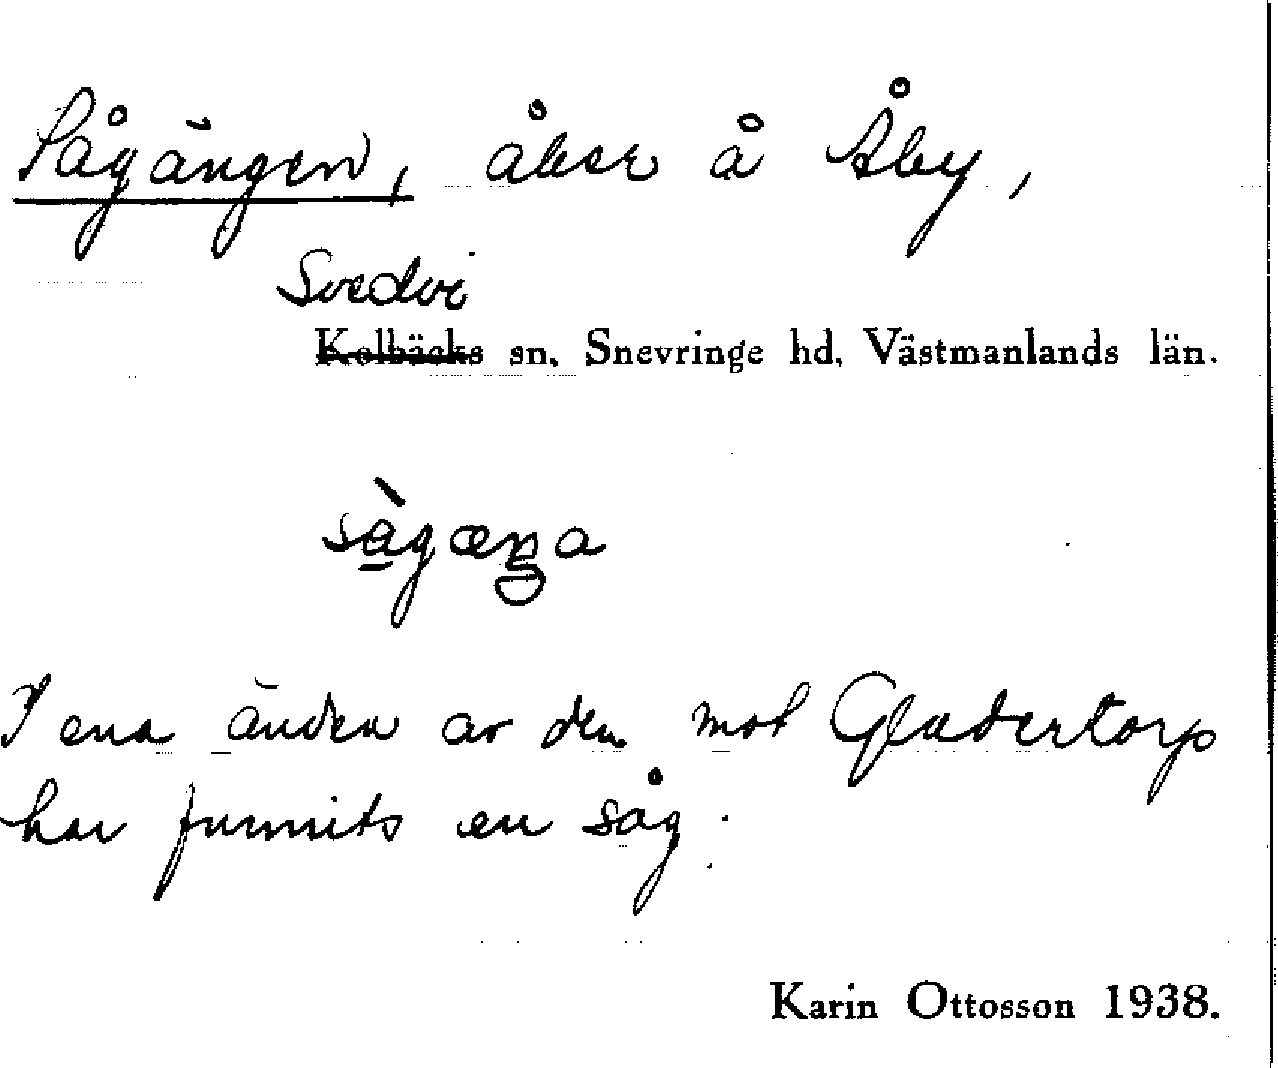 Sågängen, åker å Åby,
Svedvi
Kolbäcks sn, Snevringe hd, Västmanlands län.
sàgæŋa
I ena änden av den mot Gladertorp
har funnits en såg.
Karin Ottosson 1938.